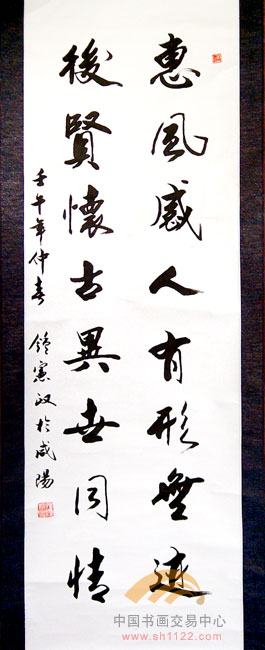 惠風感人有形無迹
後賢懷古異世同情
壬午年仲春 鍾憲政於咸陽
中国书画交易中心
www.sh1122.com